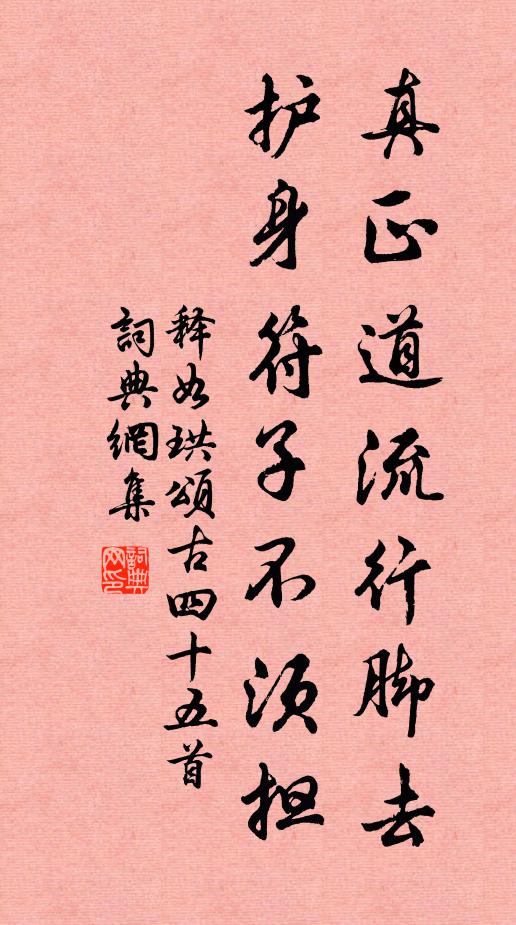 真正道流行脚去
护身符子不须担
释如珙頌古四十五首
詞典網集
詞典网印